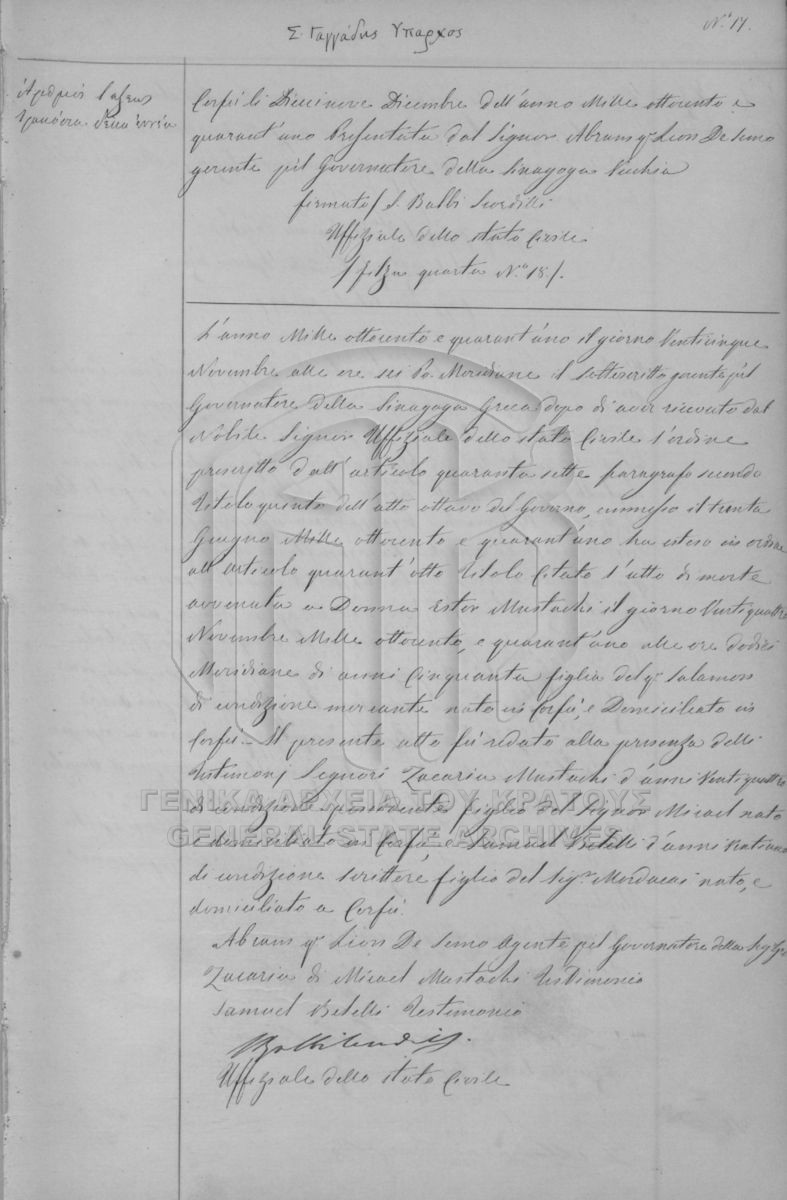 Σ. Γαγγάδης Ύπαρχος
N.º 17.
Ἀριθμὸς τάξεως
τριακόσια δέκα ἐννέα
Corfù li Diecinove Dicembre dell'anno Mille ottocento e
quarant'uno Presentata dal Signor Abram q.m Leon De Semo
gerente pel Governatore della Sinagoga Vecchia
firmato/ S. Balbi Scordilli
Uffiziale dello stato Civile
/ filza quarta N.º 18 /.
L'anno Mille ottocento e quarant'uno il giorno Venticinque
Novembre alle ore sei Po. Meridiane il sottoscritto gerente pel
Governatore della Sinagoga Greca dopo di aver ricevuto dal
Nobile Signor Uffiziale dello stato Civile l'ordine
prescritto dall'articolo quaranta sette paragrafo secondo
Titolo quinto dell'atto ottavo del Governo, emmesso il trenta
Giugno Mille ottocento e quarant'uno ha esteso in ordine
all'articolo quarant'otto Titolo Citato l'atto di morte
avvenuta a Donna Ester Mustachi il giorno Venti quattro
Novembre Mille ottocento, e quarant'uno alle ore dodici
Meridiane di anni Cinquanta figlia del q.m Salamon
di condizione mercante nato in Corfù, e Domiciliato in
Corfù. Il presente atto fu redato alla presenza delli
Testimonj Signori Zacaria Mustachi d'anni Venti quattro
di condizione possidente figlio del Signor Micael nato
e domiciliato in Corfù e Samuel Belelli d'anni
di condizione scrittore figlio del Sig.r Mordacai nato, e
domiciliato a Corfù.
Abram q.m Leon De Semo Agente pel Governatore della
Zacaria di Micael Mustachi Testimonio
Samuel Belelli Testimonio
Uffiziale dello stato Civile
ΓΕΝΙΚΑ ΑΡΧΕΙΑ ΤΟΥ ΚΡΑΤΟΥΣ
GENERAL STATE ARCHIVES